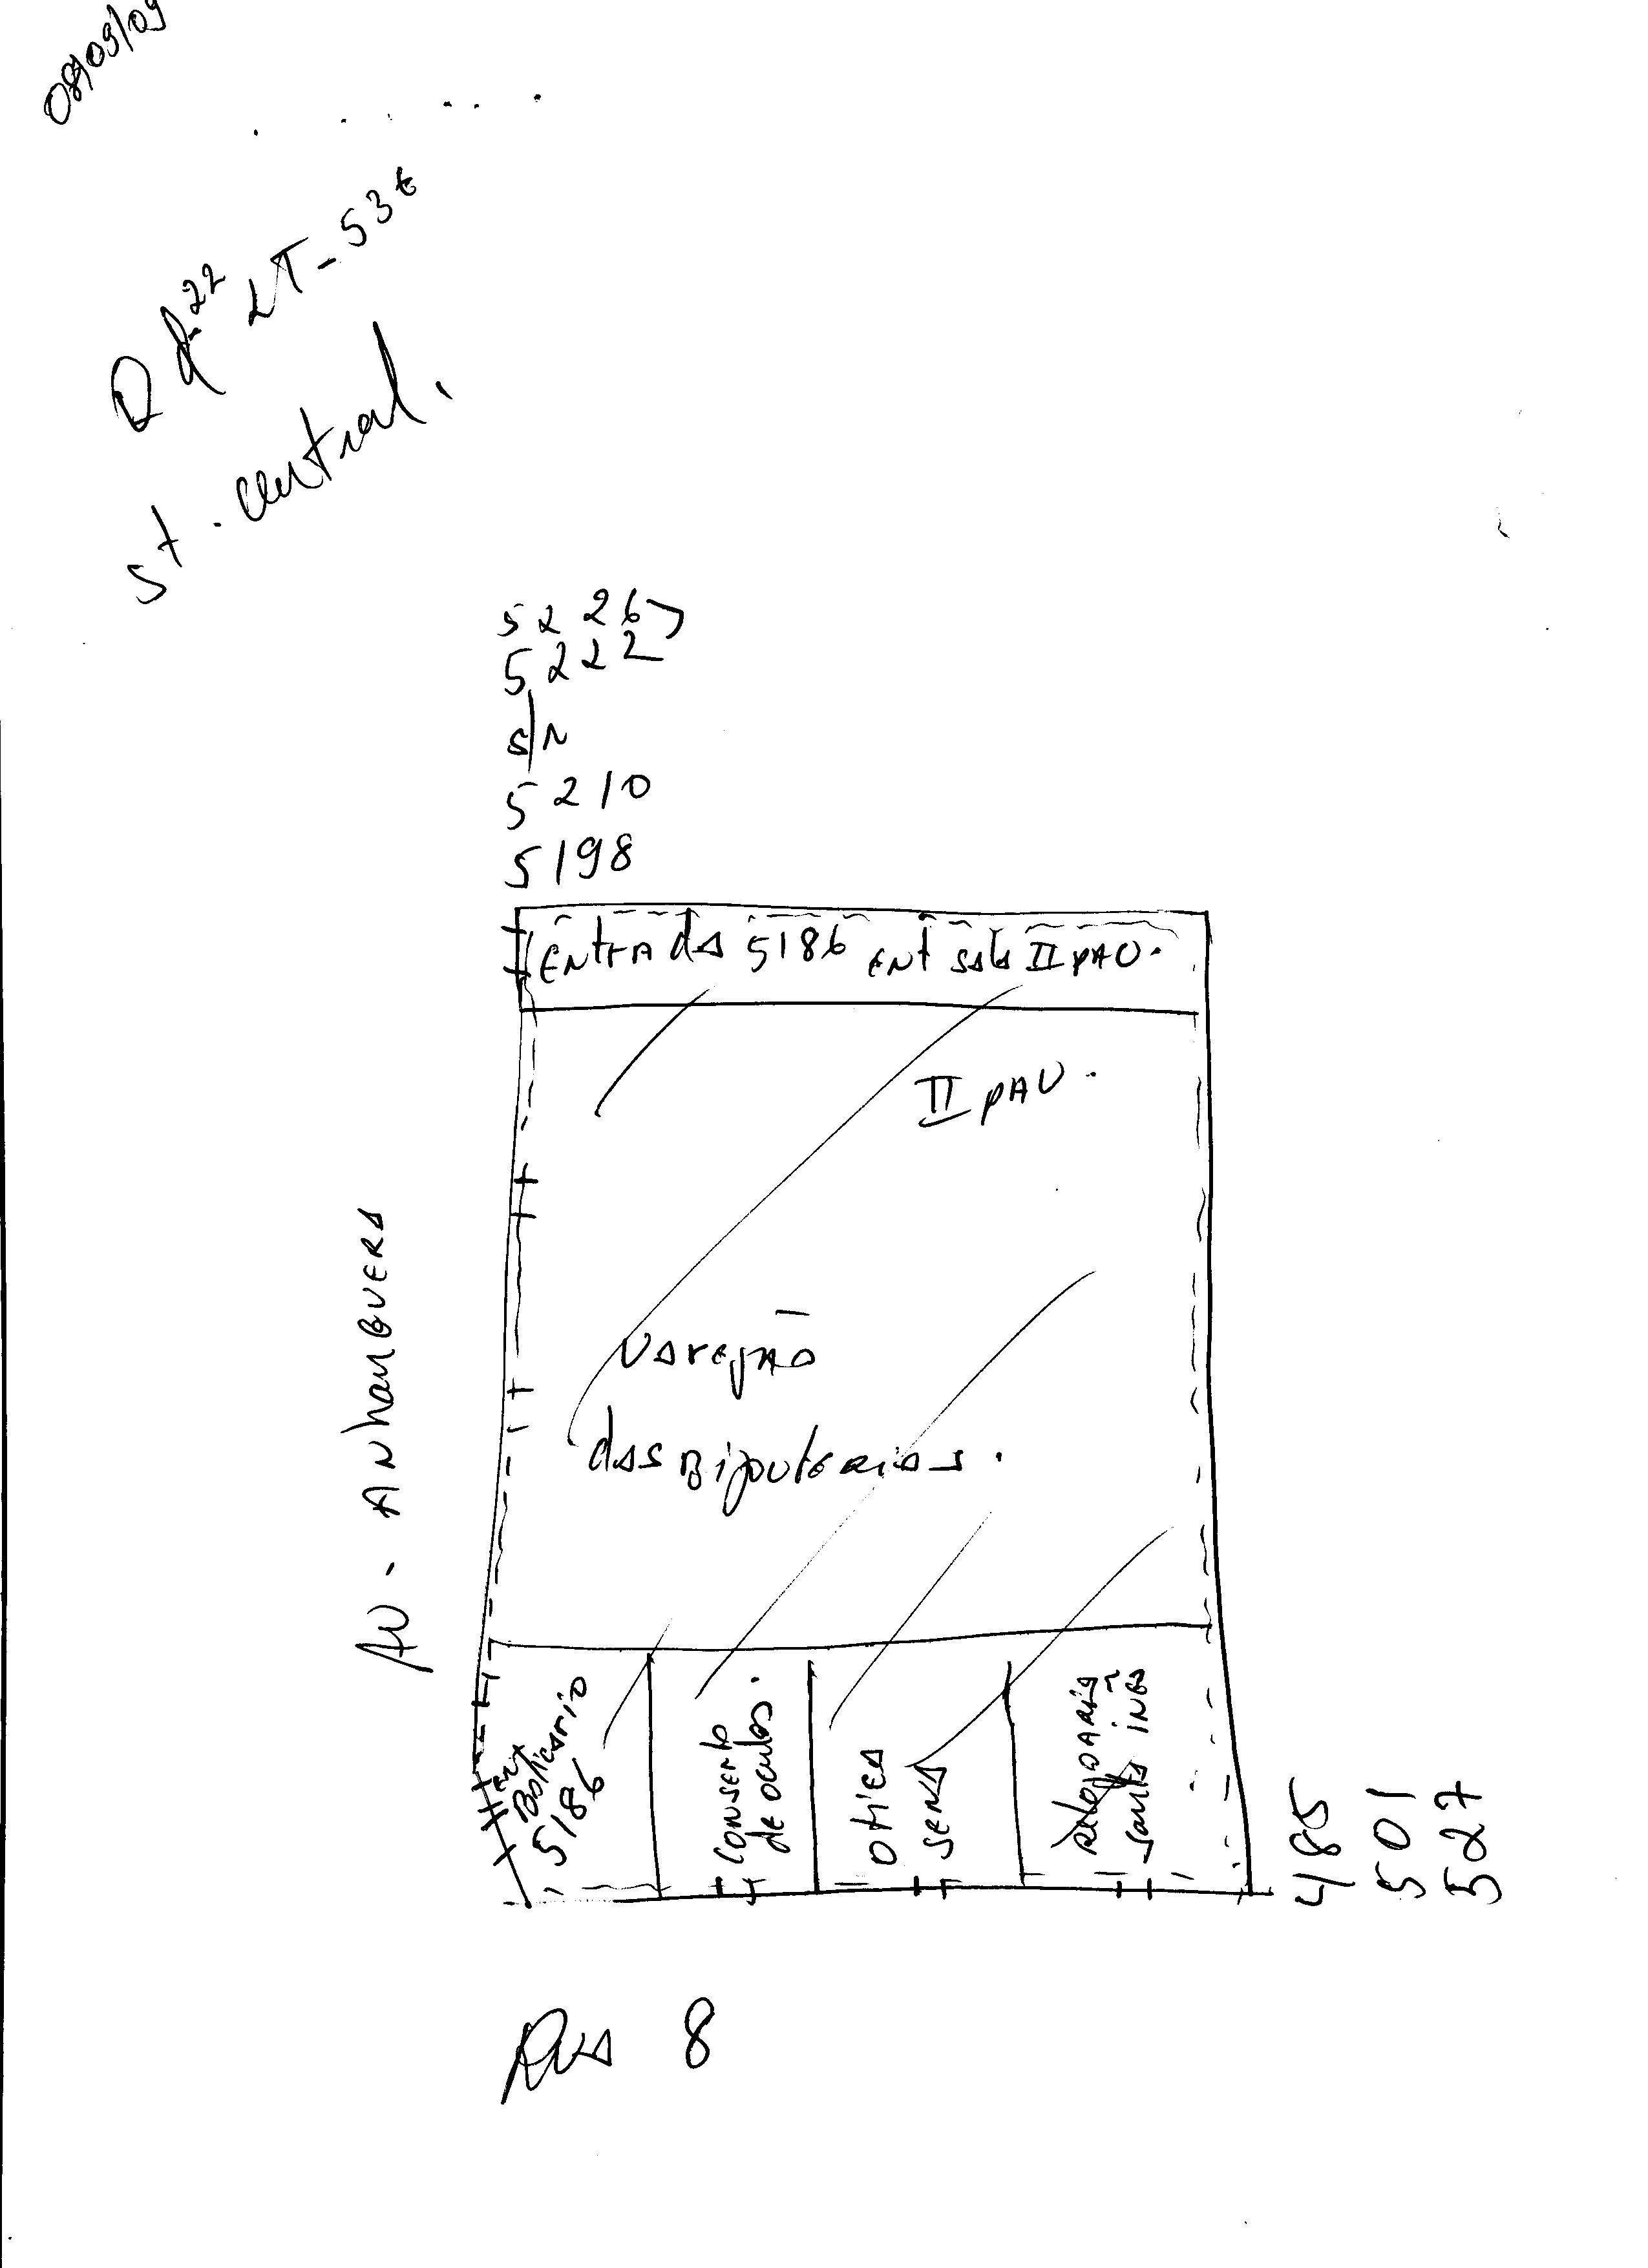 08/09/09
Qd-22 LT-53E
St. central.
5226
5222
s/n
5210
5198
ENTRAdA 5186 ENT sala II PAU.
II PAU.
AU - ANhANGUERA
VAREJÃO
das Bijouterias.
ENT
Boticario
5186
CONSERTO
de oculos.
otica
SENA
Relojoaria
Santa INÊS
485
501
527
RUA 8